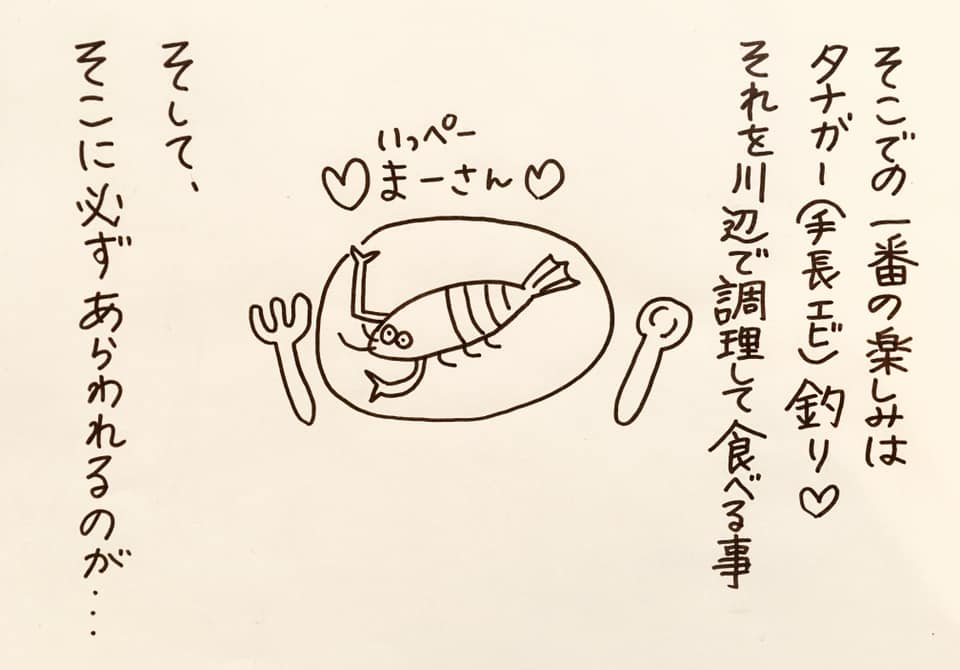 そこでの一番の楽しみは
タナガー(手長エビ)釣り♡
それを川辺で調理して食べる事
いっぺー
♡まーさん♡
そして、
そこに必ずあらわれるのが…